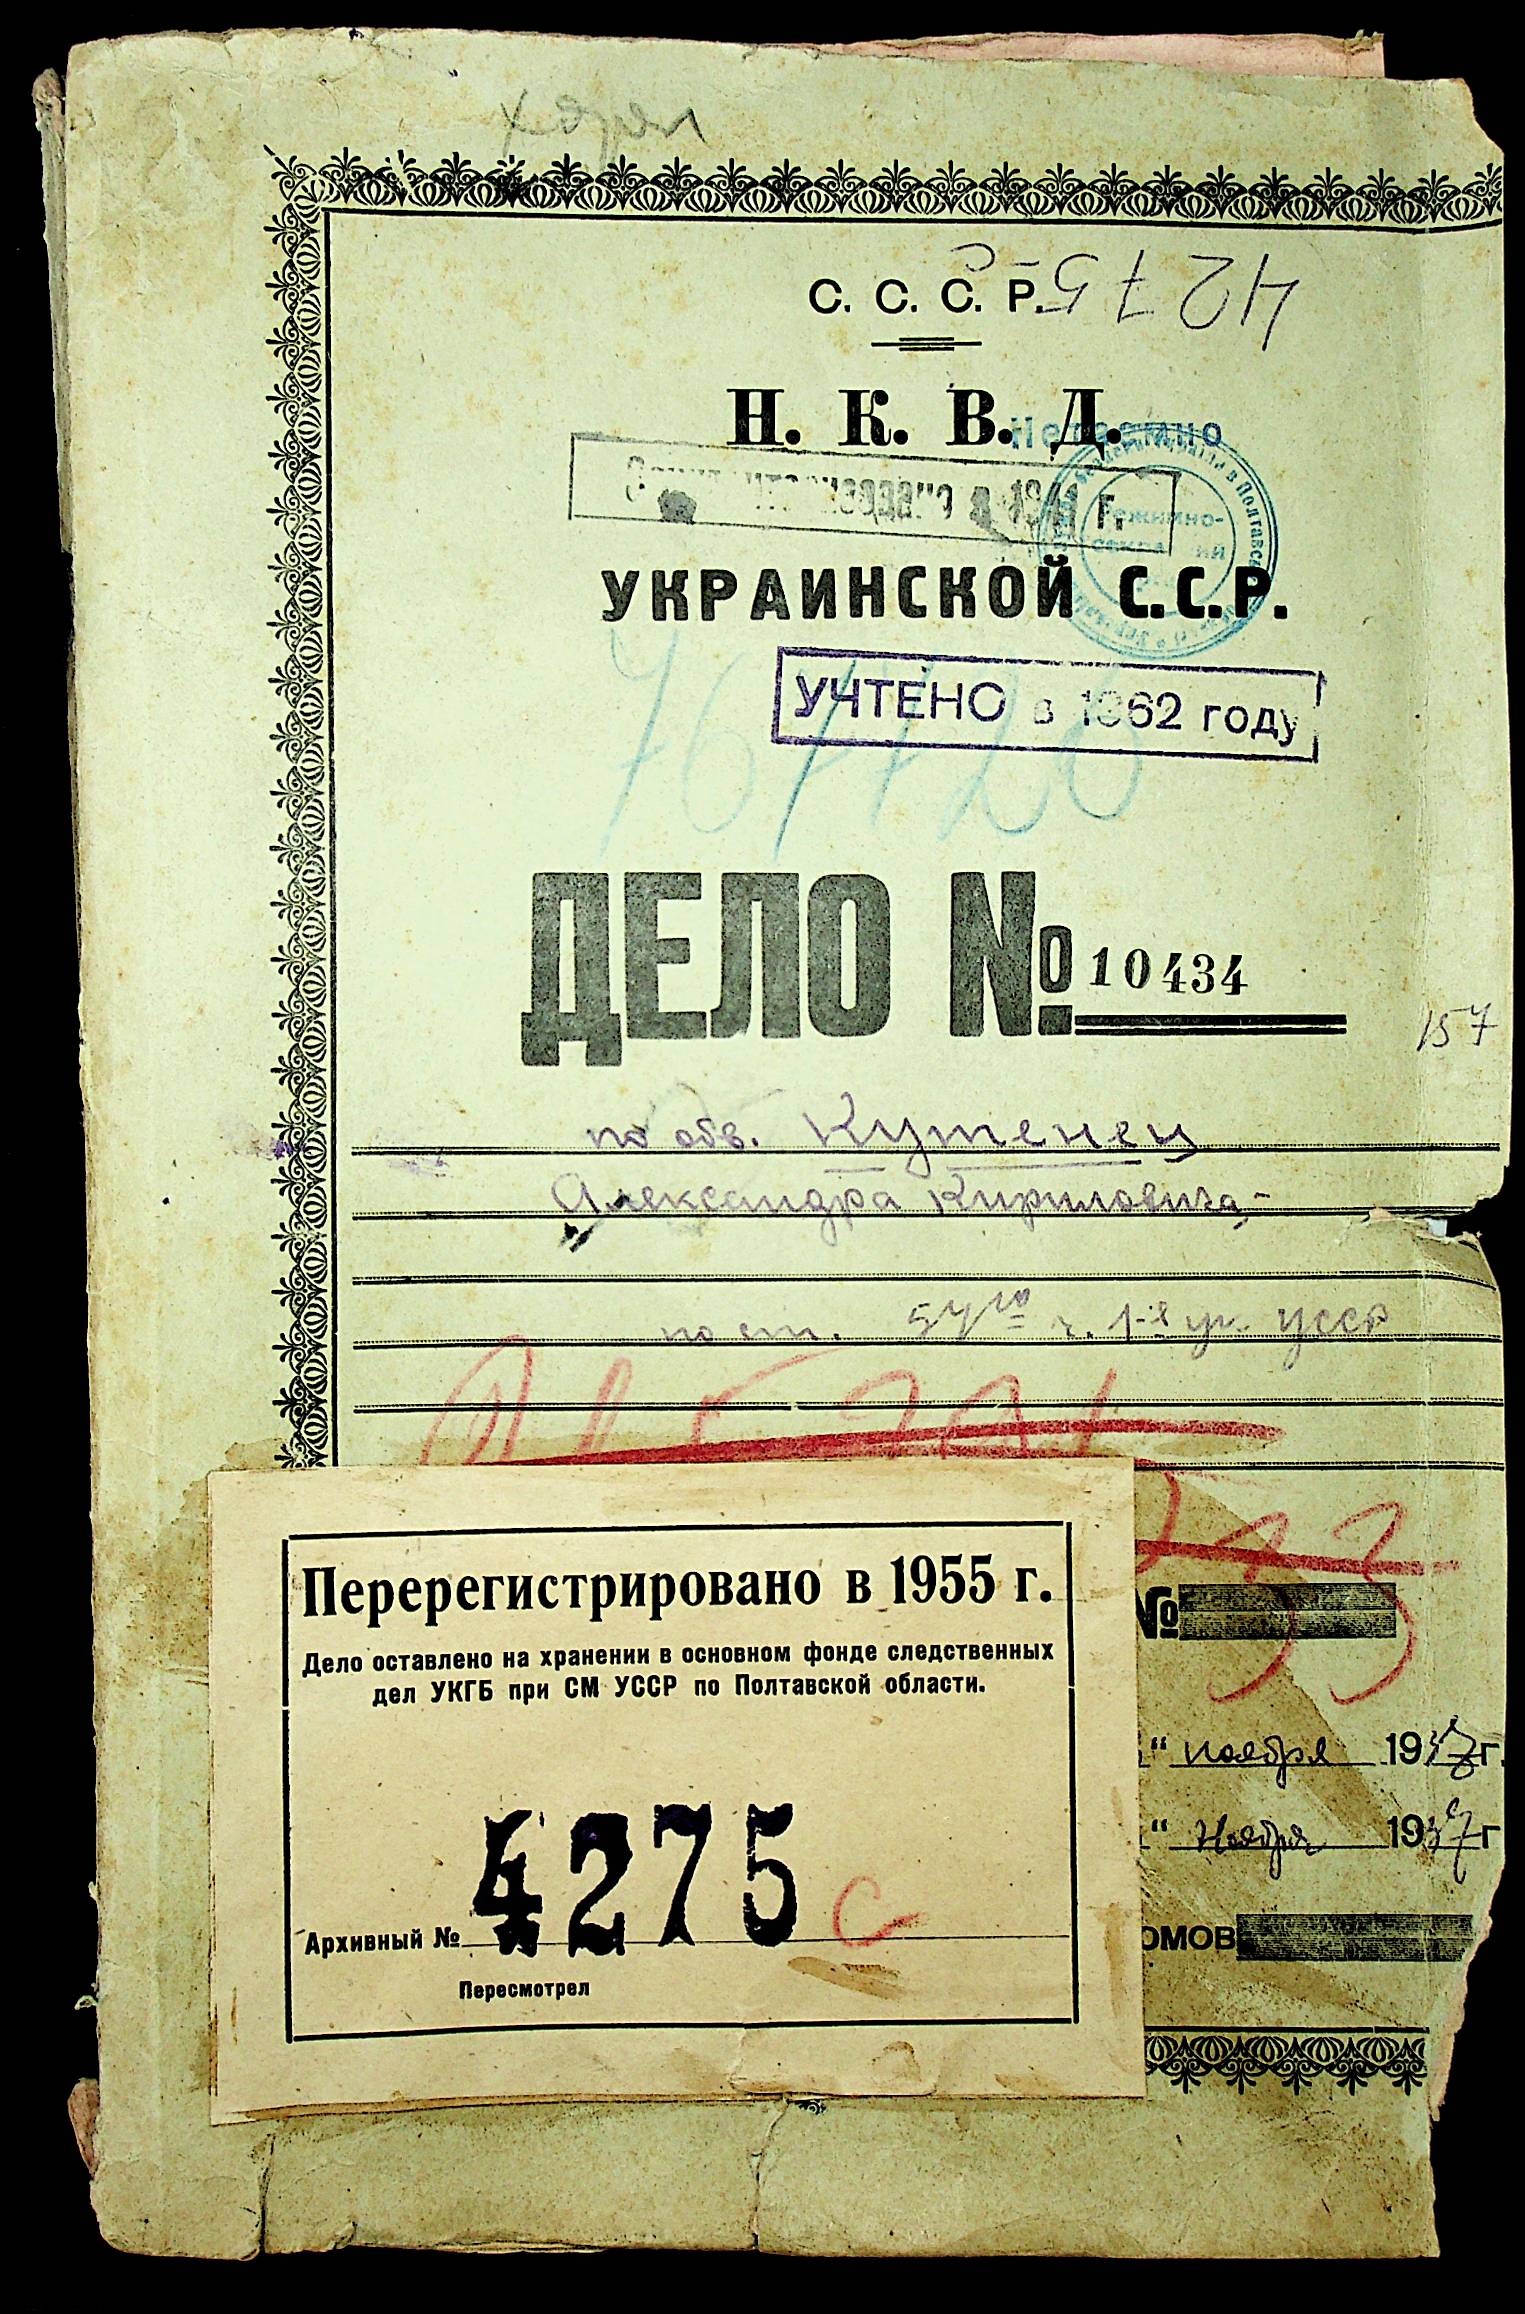 Хорол
4275-с
С. С. С. Р.
Н. К. В. Д.
в 1941 г.
УКРАИНСКОЙ С.С.Р.
УЧТЕНО в 1962 году
767720
ДЕЛО № 10434
157
по обв. Кутенец
Александра Кириловича,-
по ст. 54-10 ч. 1-й ук УССР
33
№
" ноября 1937 г.
" Ноября 1937 г
ОМОВ
Перерегистрировано в 1955 г.
Дело оставлено на хранении в основном фонде следственных
дел УКГБ при СМ УССР по Полтавской области.
Архивный № 4275 с
Пересмотрел